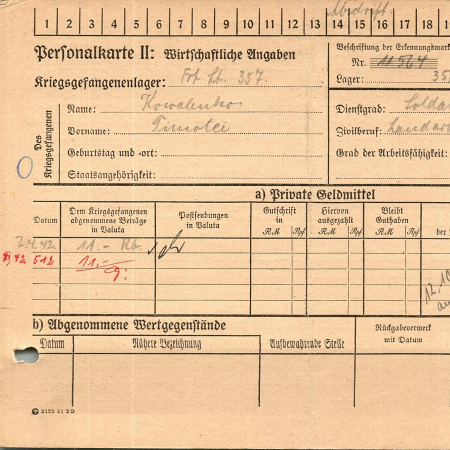 Abschrift
1 2 3 4 5 6 7 8 9 10 11 12 13 14 15 16 17 18 19
Personalkarte II: Wirtschaftliche Angaben
Beschriftung der Erkennungsmark
Kriegsgefangenenlager: Frt. Lt. 357.
Nr. 11564
Lager: 35
Des Kriegsgefangenen
Name: Kowalenko
Dienstgrad: Solda
Vorname: Timofei
Zivilberuf: Landar
Geburtstag und -ort:
Grad der Arbeitsfähigkeit:
Staatsangehörigkeit:
a) Private Geldmittel
Datum
Dem Kriegsgefangenen abgenommene Beträge in Valuta
Postsendungen in Valuta
Gutschrift in
Hiervon ausgezahlt
Bleibt Guthaben
RM Rpf RM Rpf RM Rpf
der
42 11.- Rb.
42 512 11.-
12.10
b) Abgenommene Wertgegenstände
Rückgabevermerk mit Datum
Datum
Nähere Bezeichnung
Aufbewahrende Stelle
3122 41 2 D